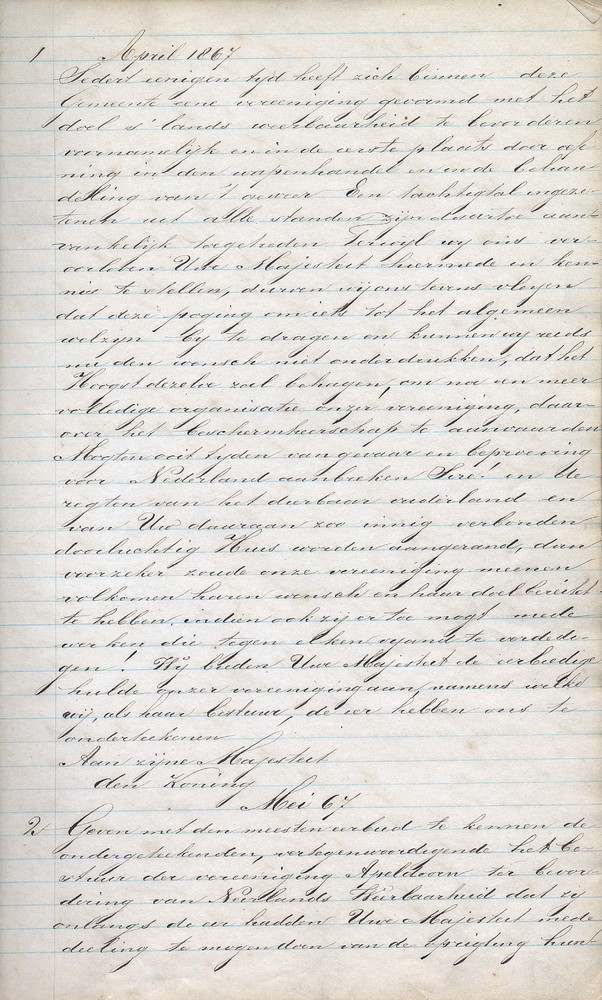 1 April 1867
Sedert eenigen tyd heeft zich binnen deze
Gemeente eene vereeniging gevormd met het
doel s' lands weerbaarheid te bevorderen
voornamelijk en in de eerste plaats door oefe
ning in den wapenhandel en in de behan-
delling van 't geweer Een tachtigtal ingeze-
tenen uit alle standen zijn daartoe aan-
vankelijk toegetreden Terwyl wy ons ver-
oorloven Uwe Majesteit hiermede in ken-
nis te stellen, durven wij ons tevens vleyen
dat deze poging om iets tot het algemeen
welzyn by te dragen en kunnen wy reeds
nu den wensch niet onderdrukken, dat het
Hoogst dezelve zal behagen, om na een meer
volledige organisatie onzer vereeniging, daar-
over het beschermheerschap te aanvaarden
Mogten ooit tyden van gevaar en beproeving
voor Nederland aanbreken Sire! en de
regten van het dierbaar vaderland en
van Uw daaraan zoo innig verbonden
doorluchtig Huis worden aangerand, dan
voorzeker zoude onze vereeniging meenen
volkomen haren wensch en haar doel bereikt
te hebben, indien ook zij er toe mogt mede
werken die tegen elken vyand te verdedi-
gen! Wij bieden Uwe Majesteit de eerbiedige
hulde onzer vereeniging aan, namens welke
wij, als haar bestuur, de eer hebben ons te
onderteekenen
Aan zyne Majesteit
den Koning
Mei 67
2 Geven met den meesten eerbied te kennen de
ondergeteekenden, vertegenwoordigende het be-
stuur der vereeniging Apeldoorn ter bevor-
dering van Neerlands Weerbaarheid dat zy
onlangs de eer hadden Uwe Majesteit mede
deeling te mogen doen van de oprigting hunt